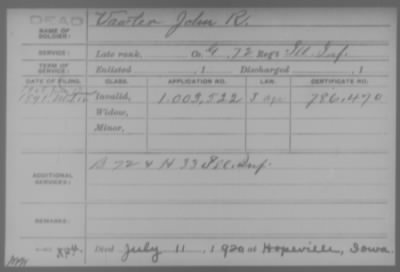 DEAD
NAME OF SOLDIER: Vawter John R.
SERVICE: Late rank, Co. G, 72 Reg't Ill. Inf.
TERM OF SERVICE: Enlisted , 1 Discharged , 1
DATE OF FILING. CLASS. APPLICATION NO. LAW. CERTIFICATE NO.
Invalid, 1.003,522 786,470
Widow,
Minor,
ADDITIONAL SERVICES: B 72 & H 33 Ill. Inf.
REMARKS:
Died July 11, 1920 at Hopeville, Iowa.